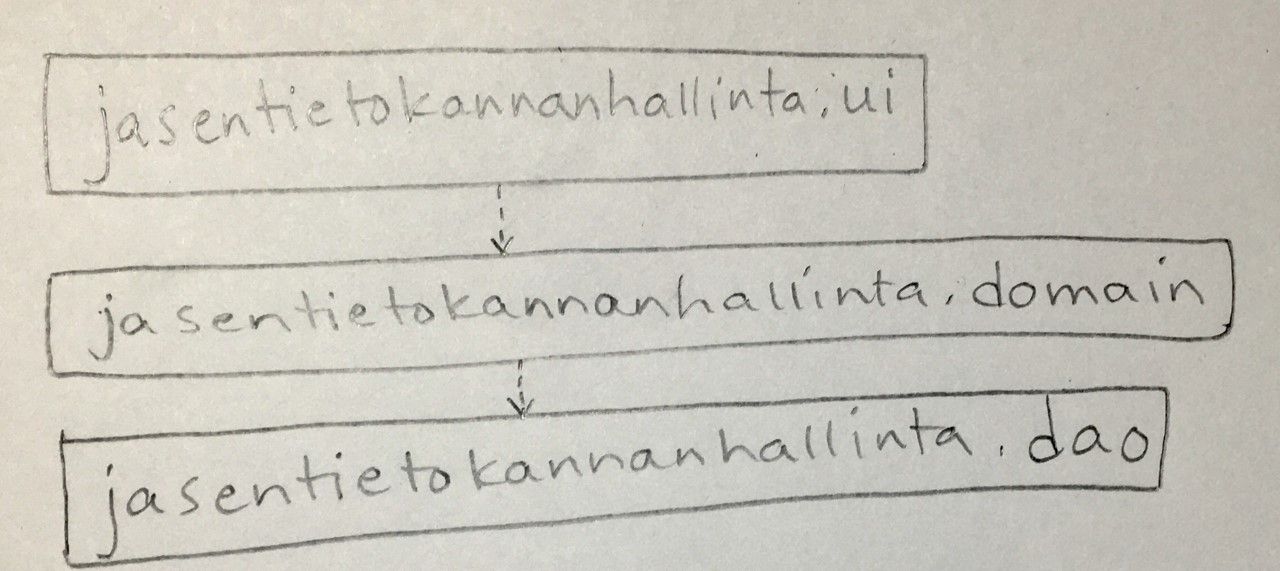 jasentietokannanhallinta.ui
jasentietokannanhallinta.domain
jasentietokannanhallinta.dao